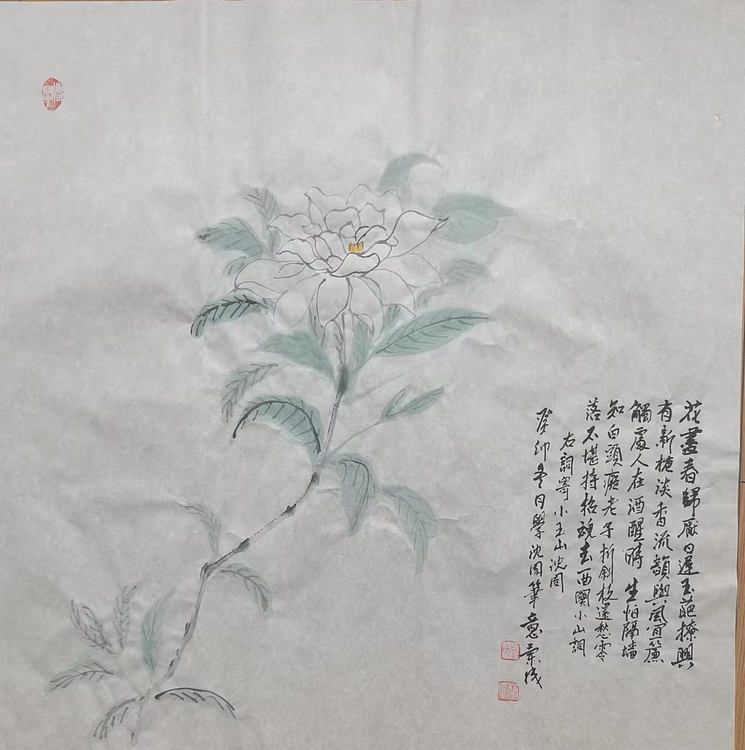 花盡春歸厭日遲玉葩撩興
有新梔淡香流韻與風宜簾
觸處人在酒醒時 生怕隔墻
知白頭癡老子折斜枝還愁零
落不堪持招魂去小山詞
右詞寄小山沈周
癸卯冬月學沈周筆意